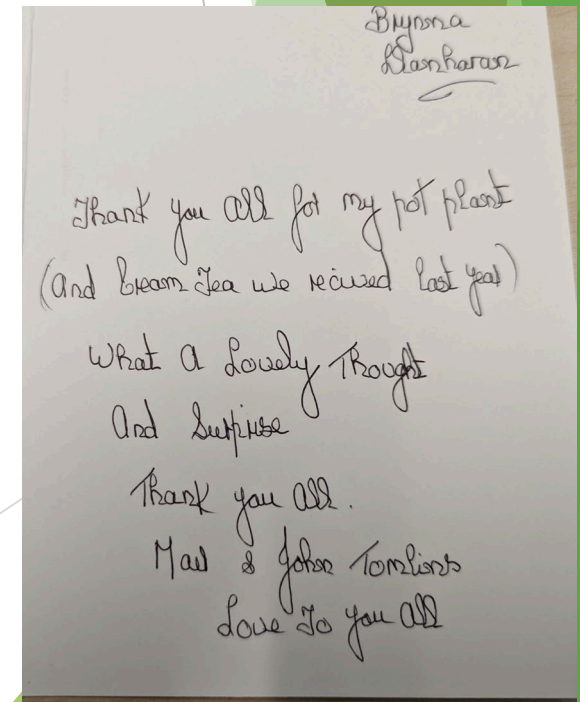 Brynna
Thank you all for my pot plant
(And Cream Tea we recived last year)
What a Lovely Thought
And Surprise
Thank you all.
& John Tomlins
Love To you all